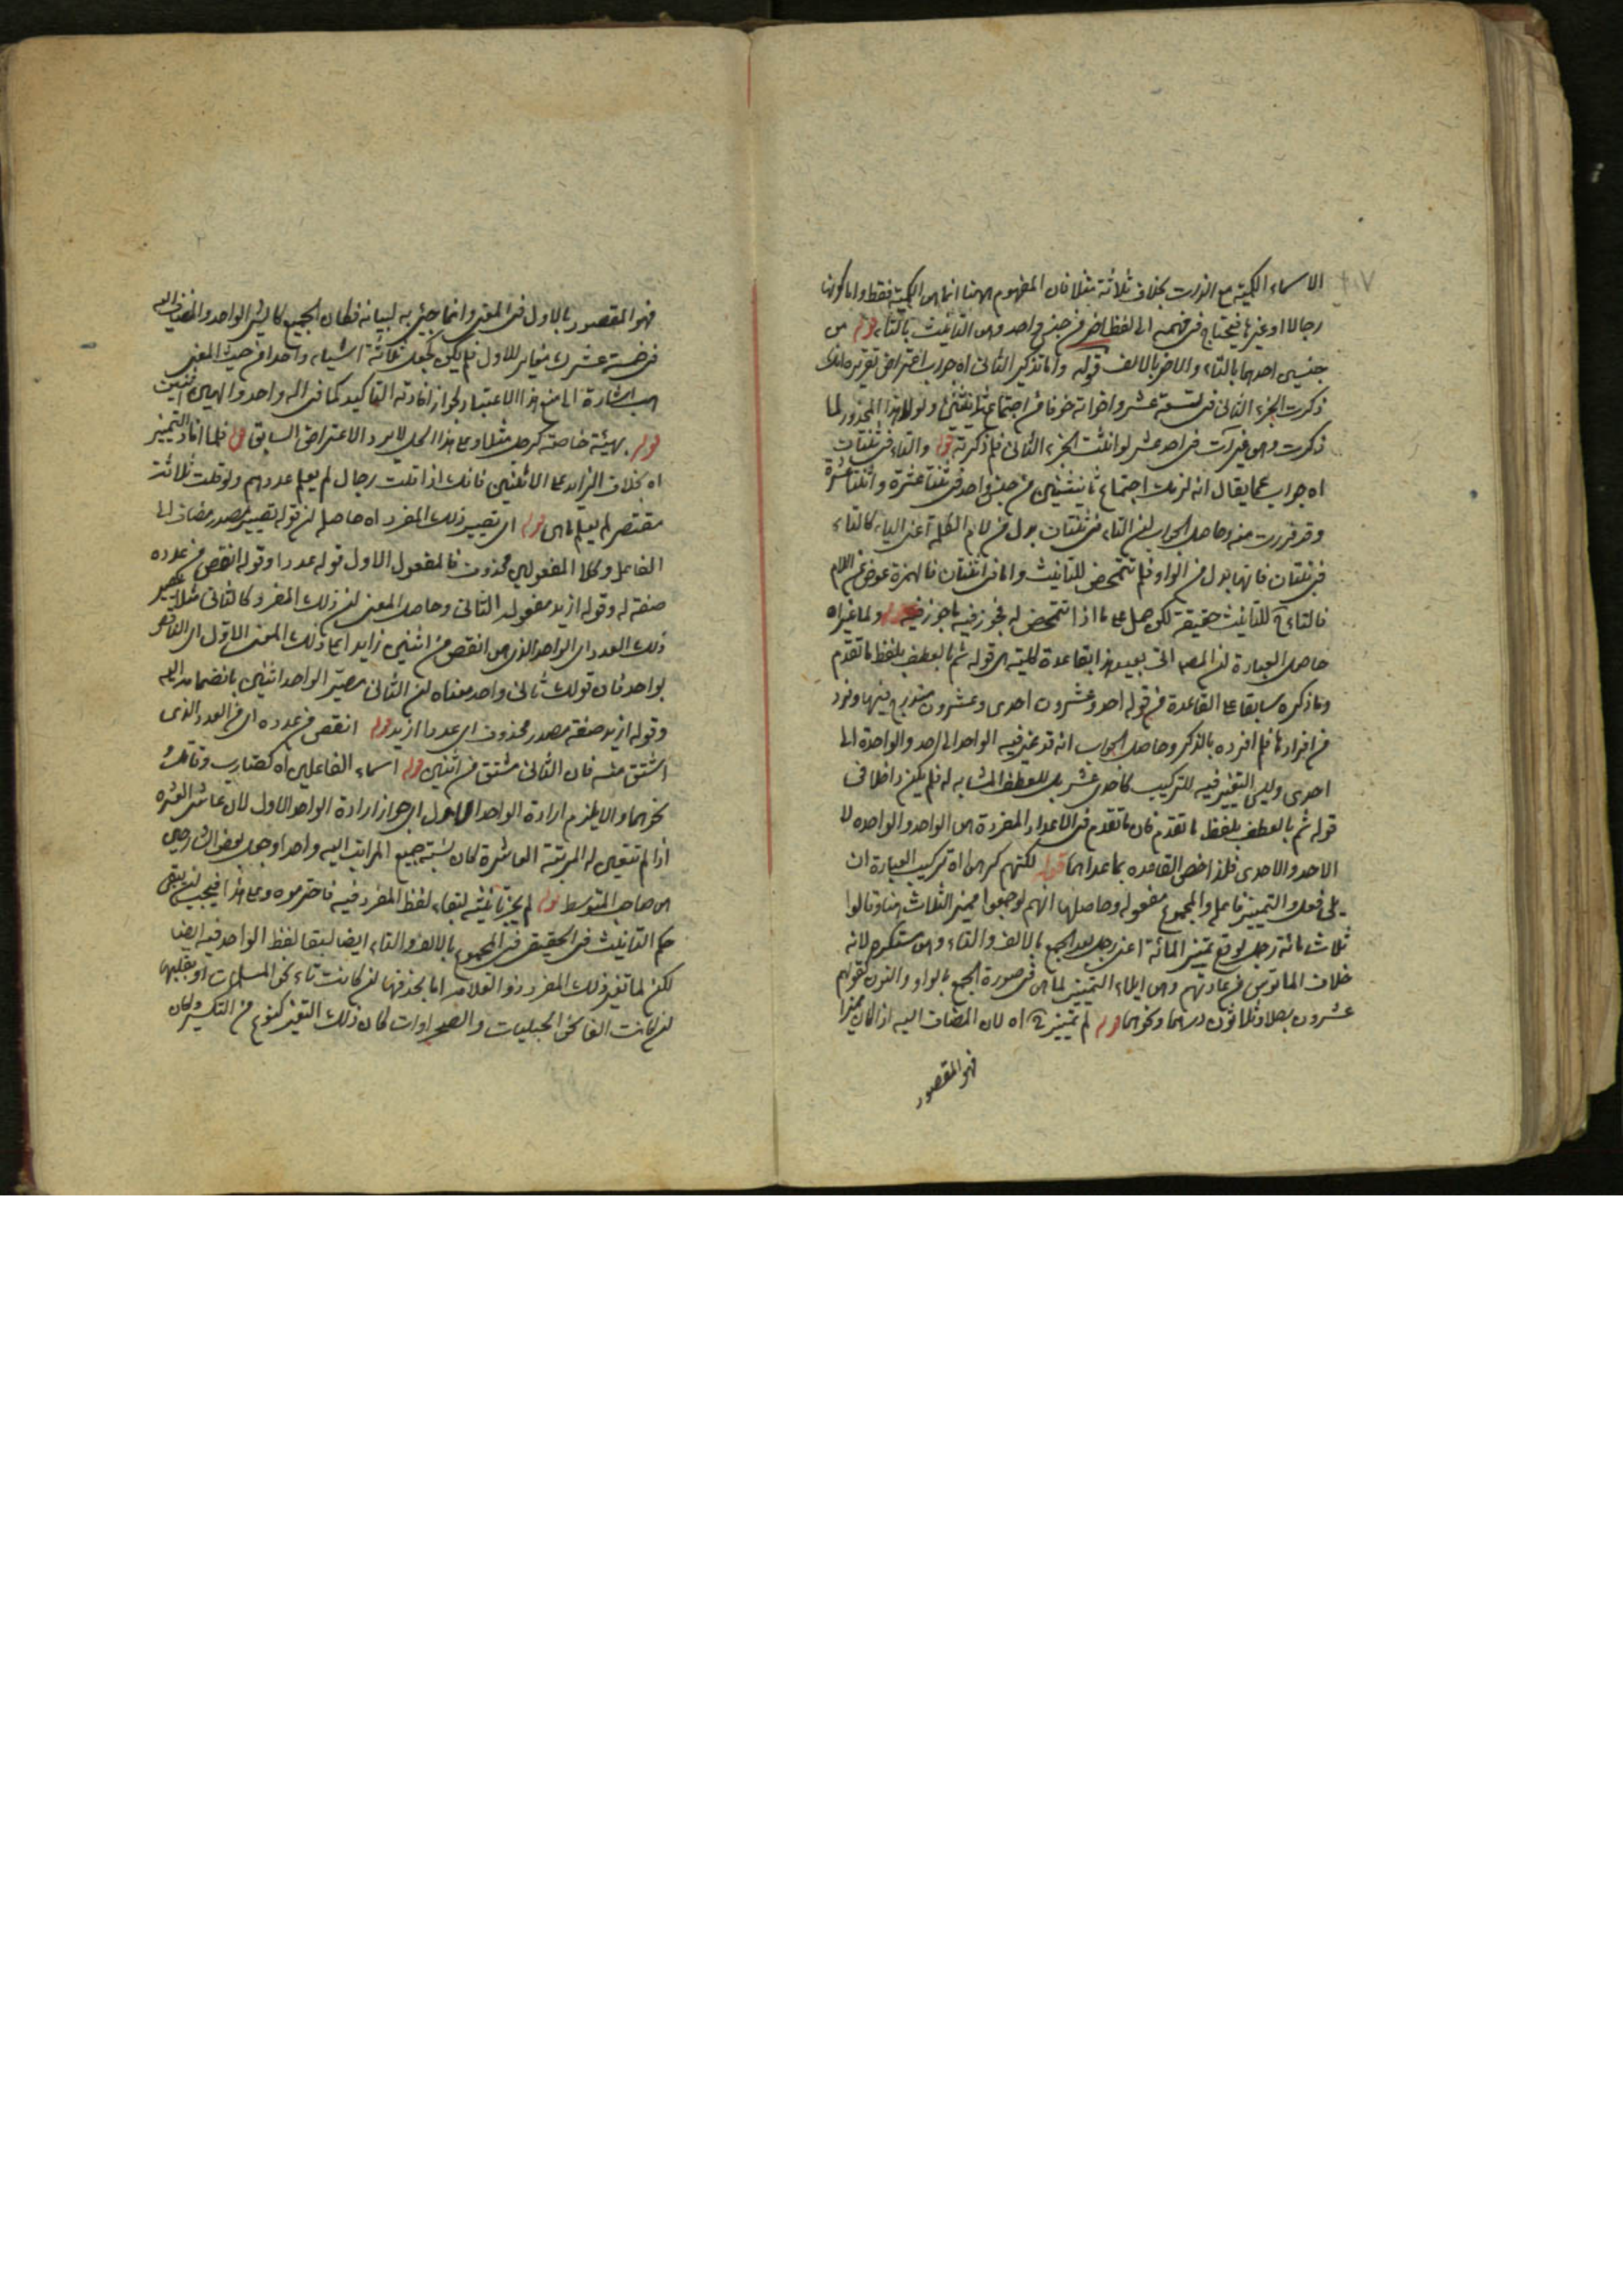 الاسماء الكمية مع الذات بخلاف ثلاثة مثلا فان المفهوم ههنا انما هي الكمية فقط واما كونها
رجالا او غيرها فيحتاج في فهمه الى لفظ اخر جنس واحد وهي التانيث بالتاء قوله من
جنسين احدهما بالتاء والاخر بالالف قوله واما تذكير الثاني اه جواب اعتراض تقريره انك
ذكرت الجزء الثاني في تسعة عشر واخواته خوفا من اجتماع تانيثين ولولا هذا المحذور لما
ذكرت وهي غير آت في احد عشر لو انثت الجزء الثاني فلم ذكرته قوله والتاء في ثنتان
اه جواب عما يقال انه لزمك اجتماع تانيثين من جنس واحد في ثنتا عشرة واثنتا عشرة
وقد فررت منه وحاصل الجواب ان التاء في ثنتان بدل من لام الكلمة اعني الياء كالتاء
في ثنتان فانها بدل من الواو فلم تتمحض للتانيث واما في اثنتان فالهمزة عوض عن اللام
فالتاء للتانيث حقيقة لكن حمل على ما اذا تتمحض له فجوز فيه ما جوز فيه قوله ولما غير اه
حاصل العبارة ان المص اتى بعيد هذا بقاعدة كلية هي قوله ثم بالعطف بلفظ ما تقدم
وما ذكره سابقا على القاعدة من قوله احد وعشرون احدى وعشرون مندرج فيها وفرد
من افرادها فلم افرده بالذكر وحاصل الجواب انه قد غير فيه الواحد الى احد والواحدة الى
احدى وليس التغير فيه للتركيب كاحدى عشر بل للعطف المشابه له فلم يكن داخلا في
قوله ثم بالعطف بلفظ ما تقدم فان ما تقدم في الاعداد المفردة هي الواحد والواحده لا
الاحد والاحدى فلذا خص القاعده بما عداهما قوله لكنهم كرهوا اه تركيب العبارة ان
يلي فعل والتمييز فاعل والمجموع مفعوله وحاصلها انهم لو جمعوا مميز الثلاث هنا وقالوا
ثلاث مائة رجل لوقع تمييز المائة اعني رجل بعد الجمع بالالف والتاء وهي مستكره لانه
خلاف المانوس من عادتهم وهي ايلاء التمييز لما هي في صورة الجمع بالواو والنون لقولهم
عشرون رجلا وثلاثون درهما ونحوهما قوله لم تمييز اه لان المضاف اليه اذا كان مميزا
فهو المقصور
فهو المقصور بالاول في المعنى وانما جيئ به لبيانه فكان الجميع كالشئ الواحد والمضاف اليه
في خمسة عشرك مغاير للاول فلم يكن كجعل ثلاثة اشياء واحدا من حيث المعنى
اشارة الى منع هذا الاعتبار لجواز افادته التاكيد كما في اله واحد والهين اثنين
قوله بهيئة خاصة كرجل مثلا وعلى هذا الحل لا يرد الاعتراض السابق قوله فلما افاد التمييز
اه بخلاف الزايد على الاثنين فانك اذا قلت رجال لم يعلم عددهم ولو قلت ثلاثة
مقتصرا لم يعلم ما هي قوله اي تصيير ذلك المفرد اه حاصله ان قوله تصيير مصدر مضاف الى
الفاعل وكلا المفعولين محذوف فالمفعول الاول قوله عددا وقوله انقص من عدده
صفة له وقوله ازيد مفعوله الثاني وحاصل المعنى ان ذلك المفرد كالثاني مثلا يصير
ذلك العدد اي الواحد الذي هي انقص من اثنين زايدا على ذلك المعنى الاول اي الناقص
بواحد فان قولك ثاني واحد معناه ان الثاني مصير الواحد اثنين بانضمامه اليه
وقوله ازيد صفة مصدر محذوف اي عددا ازيد قوله انقص من عدده اي من العدد الذي
اشتق منه فان الثاني مشتق من اثنين قوله اسماء الفاعلين اه كضارب وقاتل
نحوهما والا يلزم ارادة الواحد الاول اي جواز ارادة الواحد الاول لان عاشر العشره
اذا لم تتعين له المرتبة العاشرة كان نسبته جميع المراتب اليه واحدا وجعل بعض الشارحين
هي صاحب المتوسط قوله لم يجز تانيثه لبقاء لفظ المفرد فيه فاحترموه وعلى هذا فيجب ان يبقى
حكم التانيث في الحقيقي في المجموع بالالف والتاء ايضا لبقا لفظ الواحد فيه ايضا
لكن لما تغير ذلك المفرد ذو العلامة اما بحذفها ان كانت تاء نحو المسلمات او بقلبها
ان كانت الفا نحو الحبليات والصحراوات كان ذلك التغير كنوع من التكسير وكان